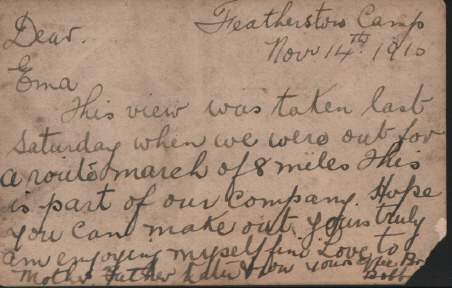 Featherston Camp
Dear. Nov 14th 1910
Ema
This view was taken last
Saturday when we were out for
a route march of 8 miles This
is part of our Company. Hope
you can make out yours truly
am enjoying myself fine Love to
Mother Father Yours